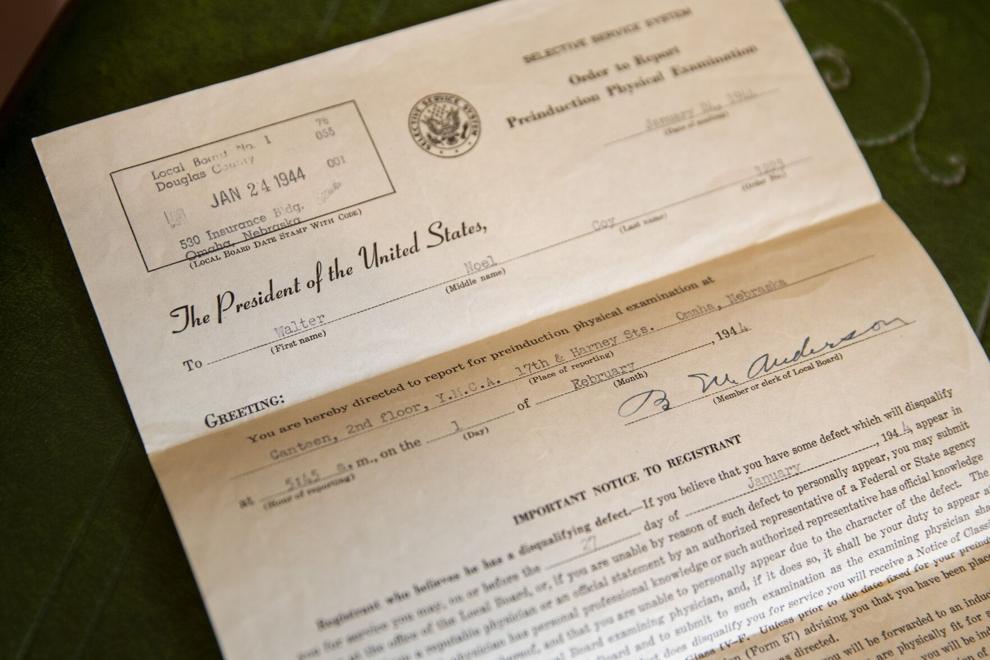 SELECTIVE SERVICE SYSTEM
Order to Report
Preinduction Physical Examination
January 24, 1944
(Date of mailing)
Local Board No. 1 76
Douglas County 055
JAN 24 1944 001
530 Insurance Bldg.
Omaha, Nebraska
(LOCAL BOARD DATE STAMP WITH CODE)
SELECTIVE SERVICE SYSTEM
(Order No.)
The President of the United States,
To Walter Noel Coy
(First name) (Middle name) (Last name)
GREETING:
You are hereby directed to report for preinduction physical examination at
Canteen, 2nd floor, Y.M.C.A. 17th & Harney Sts. Omaha, Nebraska
(Place of reporting)
at 5:45 a. m., on the 1 of February, 1944
(Hour of reporting) (Day) (Month)
B M Anderson
(Member or clerk of Local Board)
IMPORTANT NOTICE TO REGISTRANT
Registrant who believes he has a disqualifying defect.—If you believe that you have some defect which will disqualify
you for service you may, on or before the 27 day of January, 1944, appear in
at the office of the Local Board, or, if you are unable by reason of such defect to personally appear, you may submit
a reputable physician or an official statement by an authorized representative of a Federal or State agency
physician has personal professional knowledge or such authorized representative has official knowledge
thereof, and that you are unable to personally appear due to the character of the defect. The
Board examining physician, and, if it does so, it shall be your duty to appear
and to submit to such examination as the examining physician
does disqualify you for service you will receive a Notice of
Class IV-F. Unless prior to the date fixed for your
(Form 57) advising you that you have been
directed.
will be forwarded to an
are physically fit for
you will be